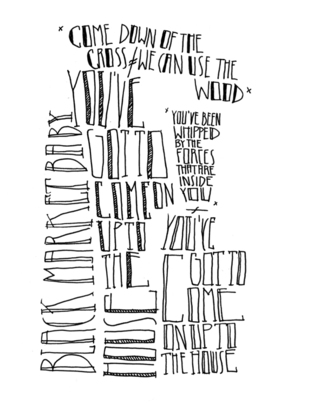 * COME DOWN OF THE
CROSS ≠ WE CAN USE THE
WOOD *
YOU'VE
GOT TO
COME ON
UP TO
THE
HOUSE
BLACK MARKET BABY
* YOU'VE BEEN
WHIPPED
BY THE
FORCES
THAT ARE
INSIDE
YOU *
≠
YOU'VE
GOT TO
COME
ON UP TO
THE HOUSE